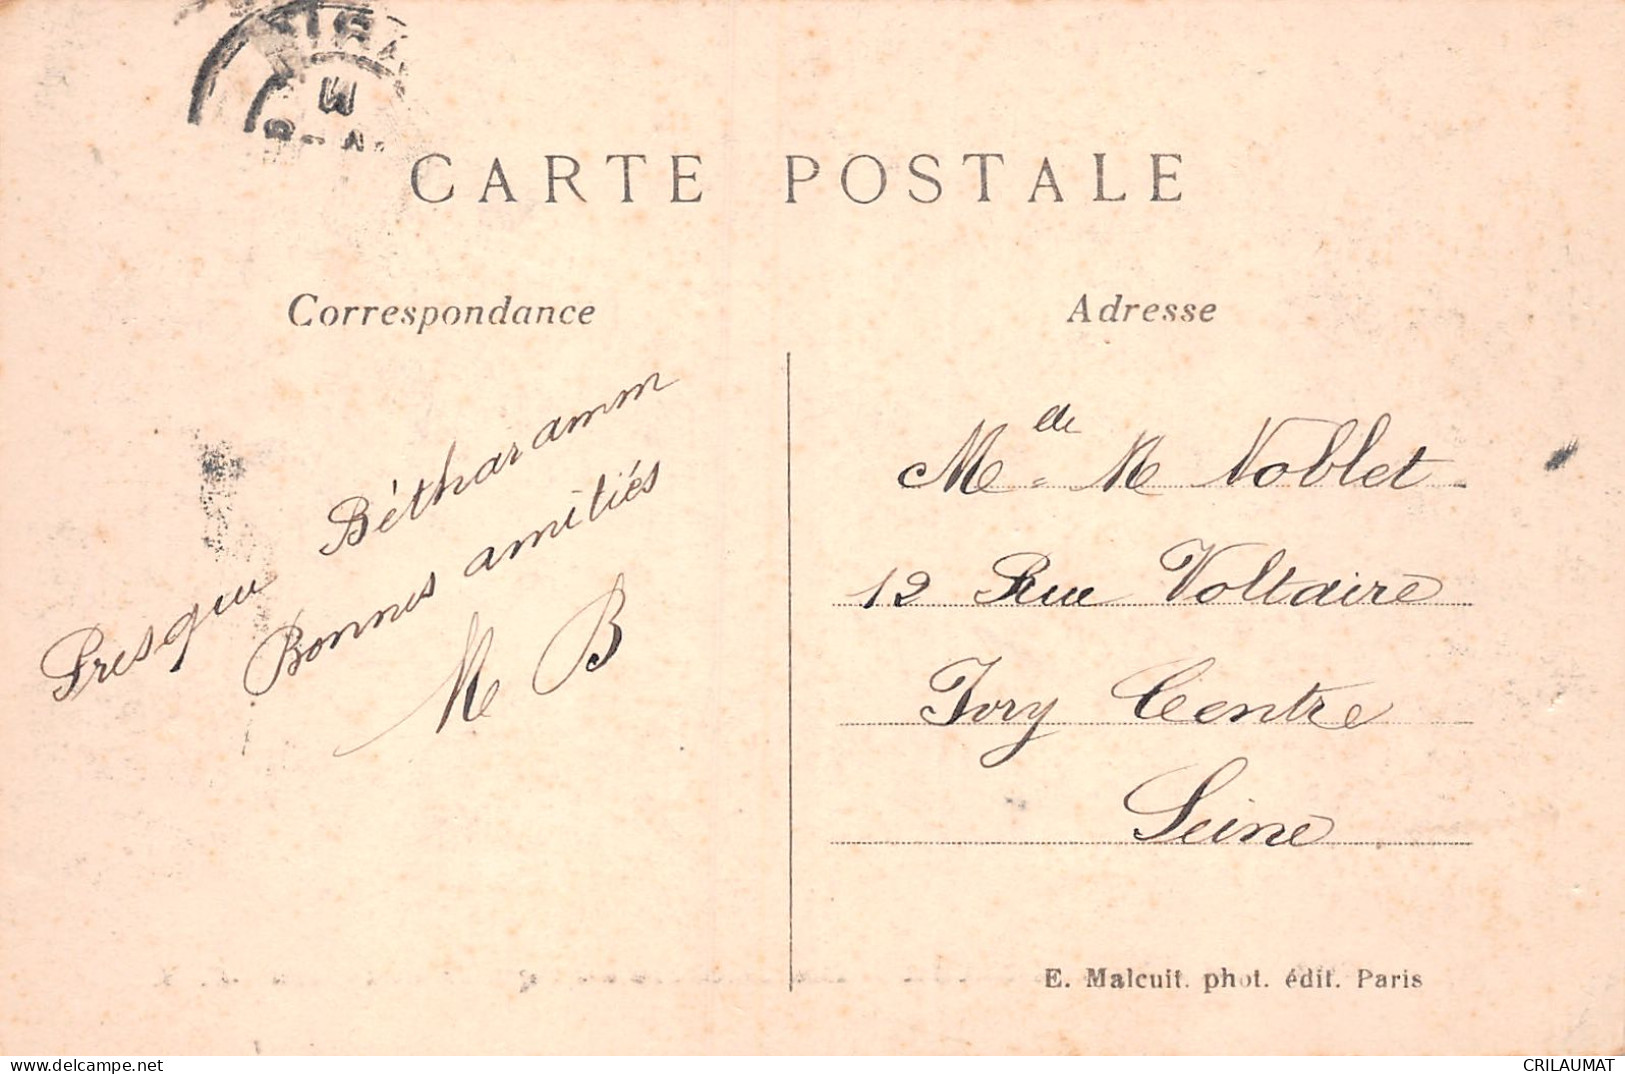 CARTE POSTALE
Correspondance
Presque Bétharamm
Bonnes amitiés
M B
Adresse
Melle M Noblet
12 Rue Voltaire
Ivry Centre
Seine
E. Malcuit. phot. édit. Paris
CRILAUMAT
www.delcampe.net